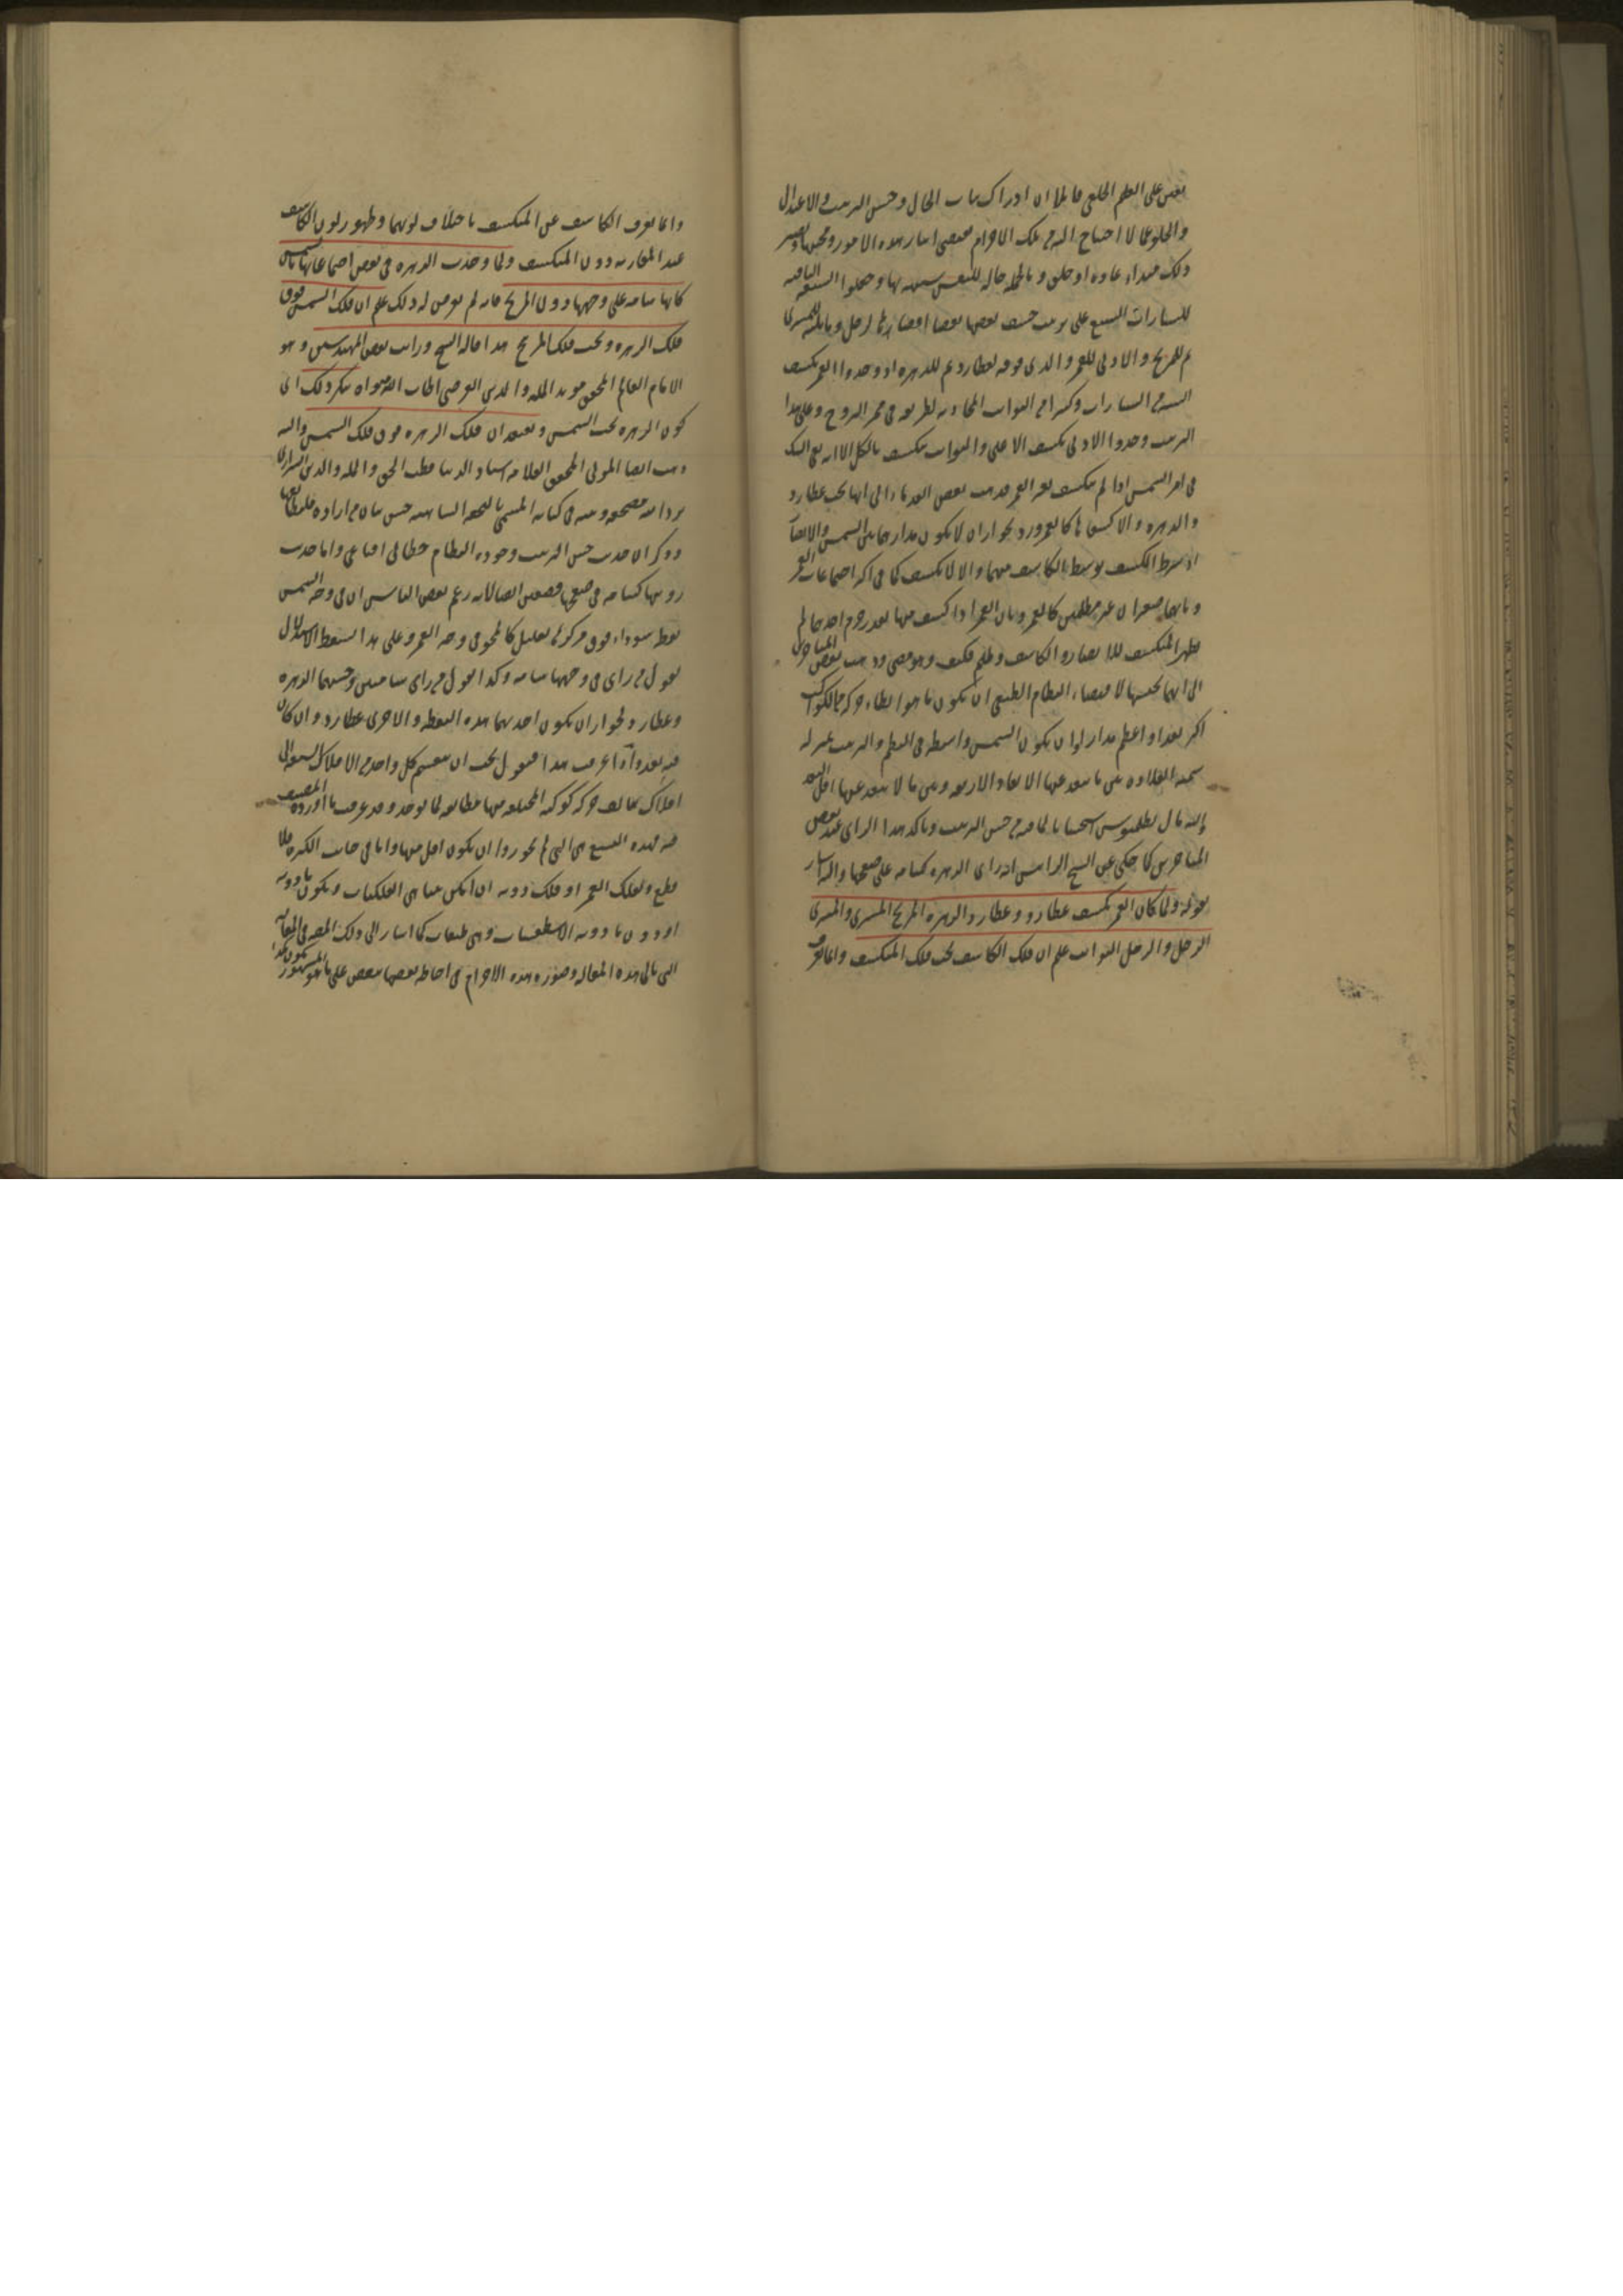 بعض على العظم الخلقى قايلا ان ادراك باب الحال وحسن الترتيب والاعتدال
والخلو عما لا احتياج اليه فى تلك الاجرام يقتضى ايثار هذه الامور ومحبتها ويصير
ذلك مبداء عادة او خلق وبالجملة حالة للنفس شبيهة بها وجعلوا السبعة الباقية
للسيارات السبع على ترتيب خسف بعضها بعضا اقصاها لزحل وما يليه للمشترى
ثم للمريخ والادنى للقمر والذى فوقه لعطارد ثم للزهرة اذ وجدوا القمر يكسف
الستة من السيارات وكثيرا من الثوابت المحاذية لطريقته فى ممر البروج وعلى هذا
الترتيب وجدوا الادنى يكسف الاعلى والثوابت تنكسف بالكل الا انه بقى الشك
فى امر الشمس اذ لم تنكسف بغير القمر فذهب بعض القدماء الى انها تحت عطارد
والزهرة والا كسفاها كالقمر ورد بجواز ان لا يكون مدارهما بين الشمس والابصار
اذ شرط الكسف توسط الكاسف بينهما والا لا يكسف كما فى اكثر اجتماعات القمر
وبانهما صغيران غير مظلمين كالقمر وبان القمر اذا كسف منها بقدر جرم احدهما لم
يظهر المنكسف للابصار والكاسف مظلم فكيف وهو مضئ وذهب بعض المتاخرين
الى انهما تحتها لاقتضاء النظام الطبيعى ان يكون ما هو ابطاء حركة من الكواكب
اكثر بعدا واعظم مدارا وان يكون الشمس واسطة فى النظم والترتيب بمنزلة
شمسة القلادة بين ما يبعد عنها الابعاد الاربعة وبين ما لا يبعد عنها اقل البعد
واليه مال بطلميوس استحسانا لما فيه من حسن الترتيب وتاكد هذا الراى عند بعض
المتاخرين كما حكى عن الشيخ الرئيس انه راى الزهرة كشامة على صفحتها واليه اشار
بقوله ولما كان القمر يكسف عطارد وعطارد الزهرة والزهرة المريخ والمريخ المشترى والمشترى
الزحل والزحل الثوابت علم ان فلك الكاسف تحت فلك المنكسف وانما يعرف
وانما يعرف الكاسف عن المنكسف باختلاف لونهما وظهور لون الكاسف
عند المقارنة دون المنكسف ولما وجدت الزهرة فى بعض اجتماعاتها بالشمس
كانها شامة على وجهها دون المريخ فانه لم يعرض له ذلك علم ان فلك الشمس فوق
فلك الزهرة وتحت فلك المريخ هذا ما قاله الشيخ ورايت بعض المهندسين وهو
الامام العالم المحقق مويد الملة والدين العرضى اطاب الله مثواه ينكر ذلك اى
كون الزهرة تحت الشمس ويعتقد ان فلك الزهرة فوق فلك الشمس واليه
ذهب ايضا المولى المحقق العلامة استاد الدنيا قطب الحق والملة والدين الشيرازى
برد الله مضجعه وبينه فى كتابه المسمى بالتحفة الشاهية حسن بيان من اراده فليطالعها
وذكر ان حديث حسن الترتيب وجودة النظام خطابى اقناعى واما حديث
رويتها كشامة فى صفحتها فضعيف ايضا لانه زعم بعض الناس ان فى وجه الشمس
نقطة سوداء فوق مركزها بقليل كالمحو فى وجه القمر وعلى هذا يسقط الاستدلال
بقول من راى فى وجهها شامة وكذا بقول من راى شامتين وحسبهما الزهرة
وعطارد لجواز ان يكون احديهما هذه النقطة والاخرى عطارد وان كان
فيه بعد واذا عرفت هذا فنقول يجب ان ينقسم كل واحد من الافلاك السبعة الى
افلاك يتالف حركة كوكبه المختلفة منها مطابقة لما يوجد وقد عرفت ما اورده المصنف
فيه فهذه التسع هى التى لم يجوزوا ان يكون اقل منها واما فى جانب الكثرة فلا
قطع ولفلك القمر او فلك دونه ان امكن تناهى الفلكيات ويكون ما دونه
او دون ما دونه الاسطقسات وهى طبقات كما اشار الى ذلك المصنف فى المقالة
التى تلى هذه المقالة وصورة هذه الاجرام فى احاطة بعضها ببعض على ما هو المشهور يكون هكذا